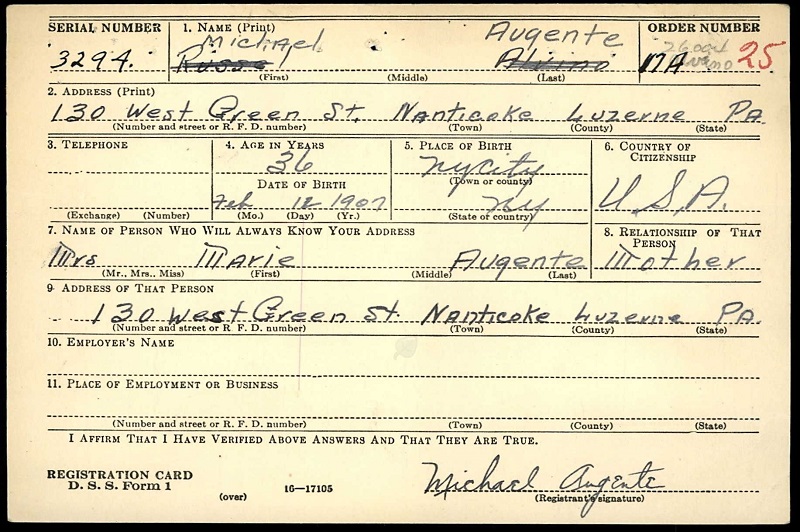 SERIAL NUMBER 1. NAME (Print) ORDER NUMBER
Michael Augente
3294. Russel Alvino 25
(First) (Middle) (Last)
2. ADDRESS (Print)
130 West Green St. Nanticoke Luzerne PA
(Number and street or R. F. D. number) (Town) (County) (State)
3. TELEPHONE 4. AGE IN YEARS 5. PLACE OF BIRTH 6. COUNTRY OF CITIZENSHIP
36 NY City
DATE OF BIRTH (Town or county) U.S.A.
Feb 12 1907 NY
(Exchange) (Number) (Mo.) (Day) (Yr.) (State or country)
7. NAME OF PERSON WHO WILL ALWAYS KNOW YOUR ADDRESS 8. RELATIONSHIP OF THAT PERSON
Mrs Marie Augente Mother
(Mr., Mrs., Miss) (First) (Middle) (Last)
9. ADDRESS OF THAT PERSON
130 West Green St. Nanticoke Luzerne PA.
(Number and street or R. F. D. number) (Town) (County) (State)
10. EMPLOYER'S NAME
11. PLACE OF EMPLOYMENT OR BUSINESS
(Number and street or R. F. D. number) (Town) (County) (State)
I AFFIRM THAT I HAVE VERIFIED ABOVE ANSWERS AND THAT THEY ARE TRUE.
REGISTRATION CARD
D. S. S. Form 1 (over) 16—17105 Michael Augente
(Registrant's signature)